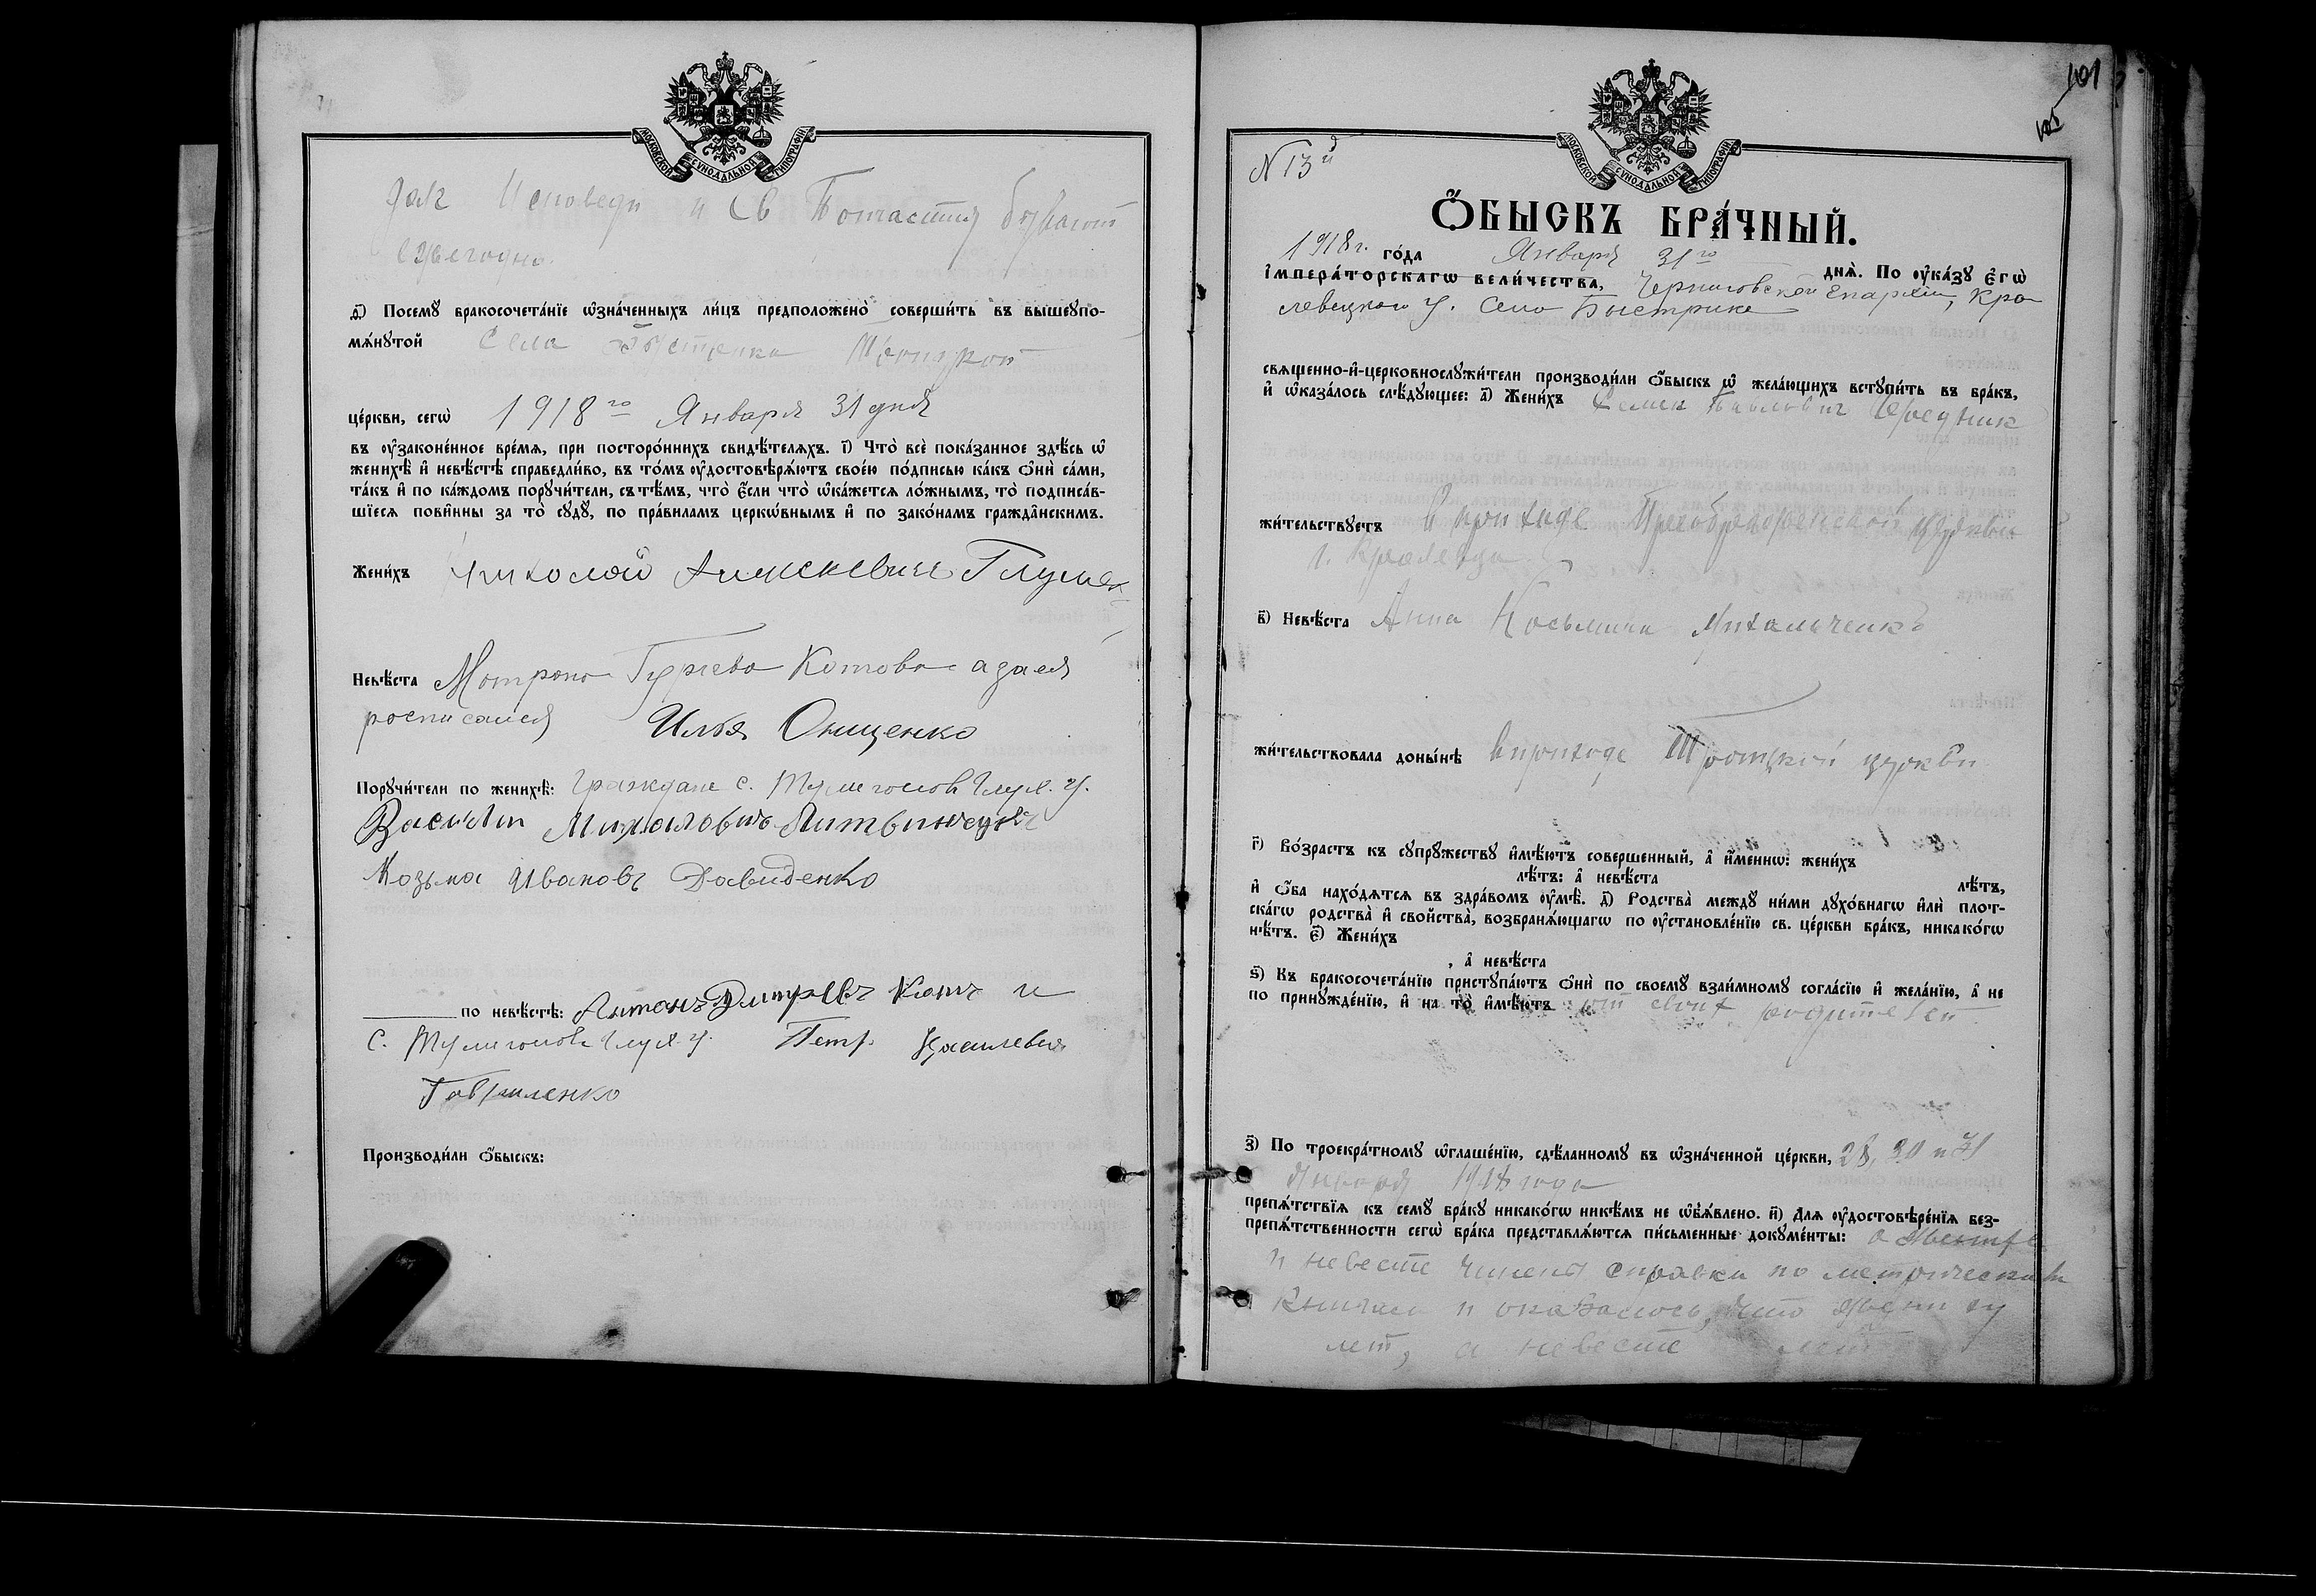 МОСКОВСКОЙ СѴНОДАЛЬНОЙ ТИПОГРАФІИ
Исповеди и Св бывают
ежегодно.
д҃) Посемꙋ бракосочета́нїе ѡ҆зна́ченныхъ ли́цъ предположено̀ соверши́ть въ вышеꙋпо-
мѧ́нꙋтой Села Быстрика Троицкой
це́ркви, сегѡ̀ 1918го Января 31 дня
въ ᲂу҆зако́ненное вре́мѧ, при посторо́ннихъ свидѣ́телѧхъ. і҃) Что̀ всѐ пока́занное здѣ́сь ѡ҆
женихѣ̀ и҆ невѣ́стѣ справедли́во, въ то́мъ ᲂу҆достовѣрѧ́ютъ свое́ю по́дписью ка́къ ѻ҆нѝ са́ми,
та́къ и҆ по ка́ждомъ порꙋчи́тели, съ тѣ́мъ, что̀ є҆́сли что̀ ѡ҆ка́жетсѧ ло́жнымъ, то̀ подписа́в-
шїесѧ пови́нны за то̀ сꙋдꙋ̀, по пра́виламъ церкѡ́внымъ и҆ по зако́намъ гражда̑нскимъ.
Жени́хъ Николай Глушек
Невѣ́ста Мотрона Гуриева Котова а за ея
росписался Илья Онищенко
Порꙋчи́тели по женихѣ̀: Граждане с. Тулиголов Глух. у.
Василий Михаловичъ Литвиненко
Козьма Ивановъ Давиденко
по невѣ́стѣ: Антонъ Дмитревъ Котъ и
с. Тулиголовъ Глух. у. Петр. Василевич
Гавриленко
Производи́ли ѻ҆́быскъ:
101
105
МОСКОВСКОЙ СѴНОДАЛЬНОЙ ТИПОГРАФІИ
N 13й
Ѻ҆́БЫСКЪ БРА́ЧНЫЙ.
1918 г. го́да Января 31го днѧ̀. По ᲂу҆ка́зꙋ є҆гѡ̀
і҆мпера́торскагѡ вели́чества, Черниговской Епархии, Кро
левецкого у. Села Быстрика
свѧщенно-и҆-церковнослꙋжи́тели производи́ли ѻ҆́быскъ ѡ҆ жела́ющихъ встꙋпи́ть въ бра́къ,
и҆ ѡ҆каза́лось слѣ́дꙋющее: а҃) Жени́хъ Семен Павлович Чередник
жи́тельствꙋетъ В приходе Преображенской церкви
г. Кролевца
в҃) Невѣ́ста Анна Косьмина Михальченко
жи́тельствовала доны́нѣ в приходе Троицкой церкви
г҃) Во́зрастъ къ сꙋпрꙋ́жествꙋ и҆мѣ́ютъ соверше́нный, а҆ и҆́меннѡ: жени́хъ
лѣ́тъ: а҆ невѣ́ста лѣ́тъ,
и҆ ѻ҆́ба нахо́дѧтсѧ въ здра́вомъ ᲂу҆мѣ̀. д҃) Родства̀ междꙋ ни́ми дꙋхо́внагѡ и҆лѝ плот-
ска́гѡ родства̀ и҆ сво́йства, возбранѧ́ющагѡ по ᲂу҆становле́нїю св. це́ркви бра́къ, никако́гѡ
нѣ́тъ. є҃) Жени́хъ
, а҆ невѣ́ста
ѕ҃) Къ бракосочета́нїю пристꙋпа́ютъ ѻ҆нѝ по своемꙋ̀ взаи́мномꙋ согла́сїю и҆ жела́нїю, а҆ не
по принꙋжде́нїю, и҆ на то̀ и҆мѣ́ютъ от своих родителей
з҃) По троекра́тномꙋ ѡ҆глаше́нїю, сдѣ́ланномꙋ въ ѡ҆зна́ченной це́ркви, 28, 30 и 31
Января 1918 года
препѧ́тствїѧ къ семꙋ̀ бра́кꙋ никако́гѡ никѣ́мъ не ѡ҆б̾ѧ́влено. и҃) Длѧ ᲂу҆достовѣре́нїѧ без-
препѧ́тственности сегѡ̀ бра́ка представлѧ́ютсѧ пи́сьменные докꙋме́нты: о женихе
и невесте чинена справка по метрическим
книгам и оказалось, что жениху
лет, а невесте лет